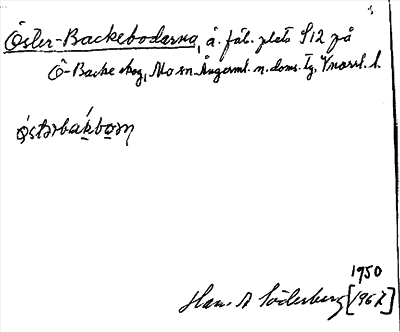 Öster-Backebodarna, å. fäb.plats S12 på
Ö-Backe skog, Mo sn. Ångerml. n. doms. Tg, Vnorrl. l.
östərbakboɳ
1950
Hans A Söderberg [1967]